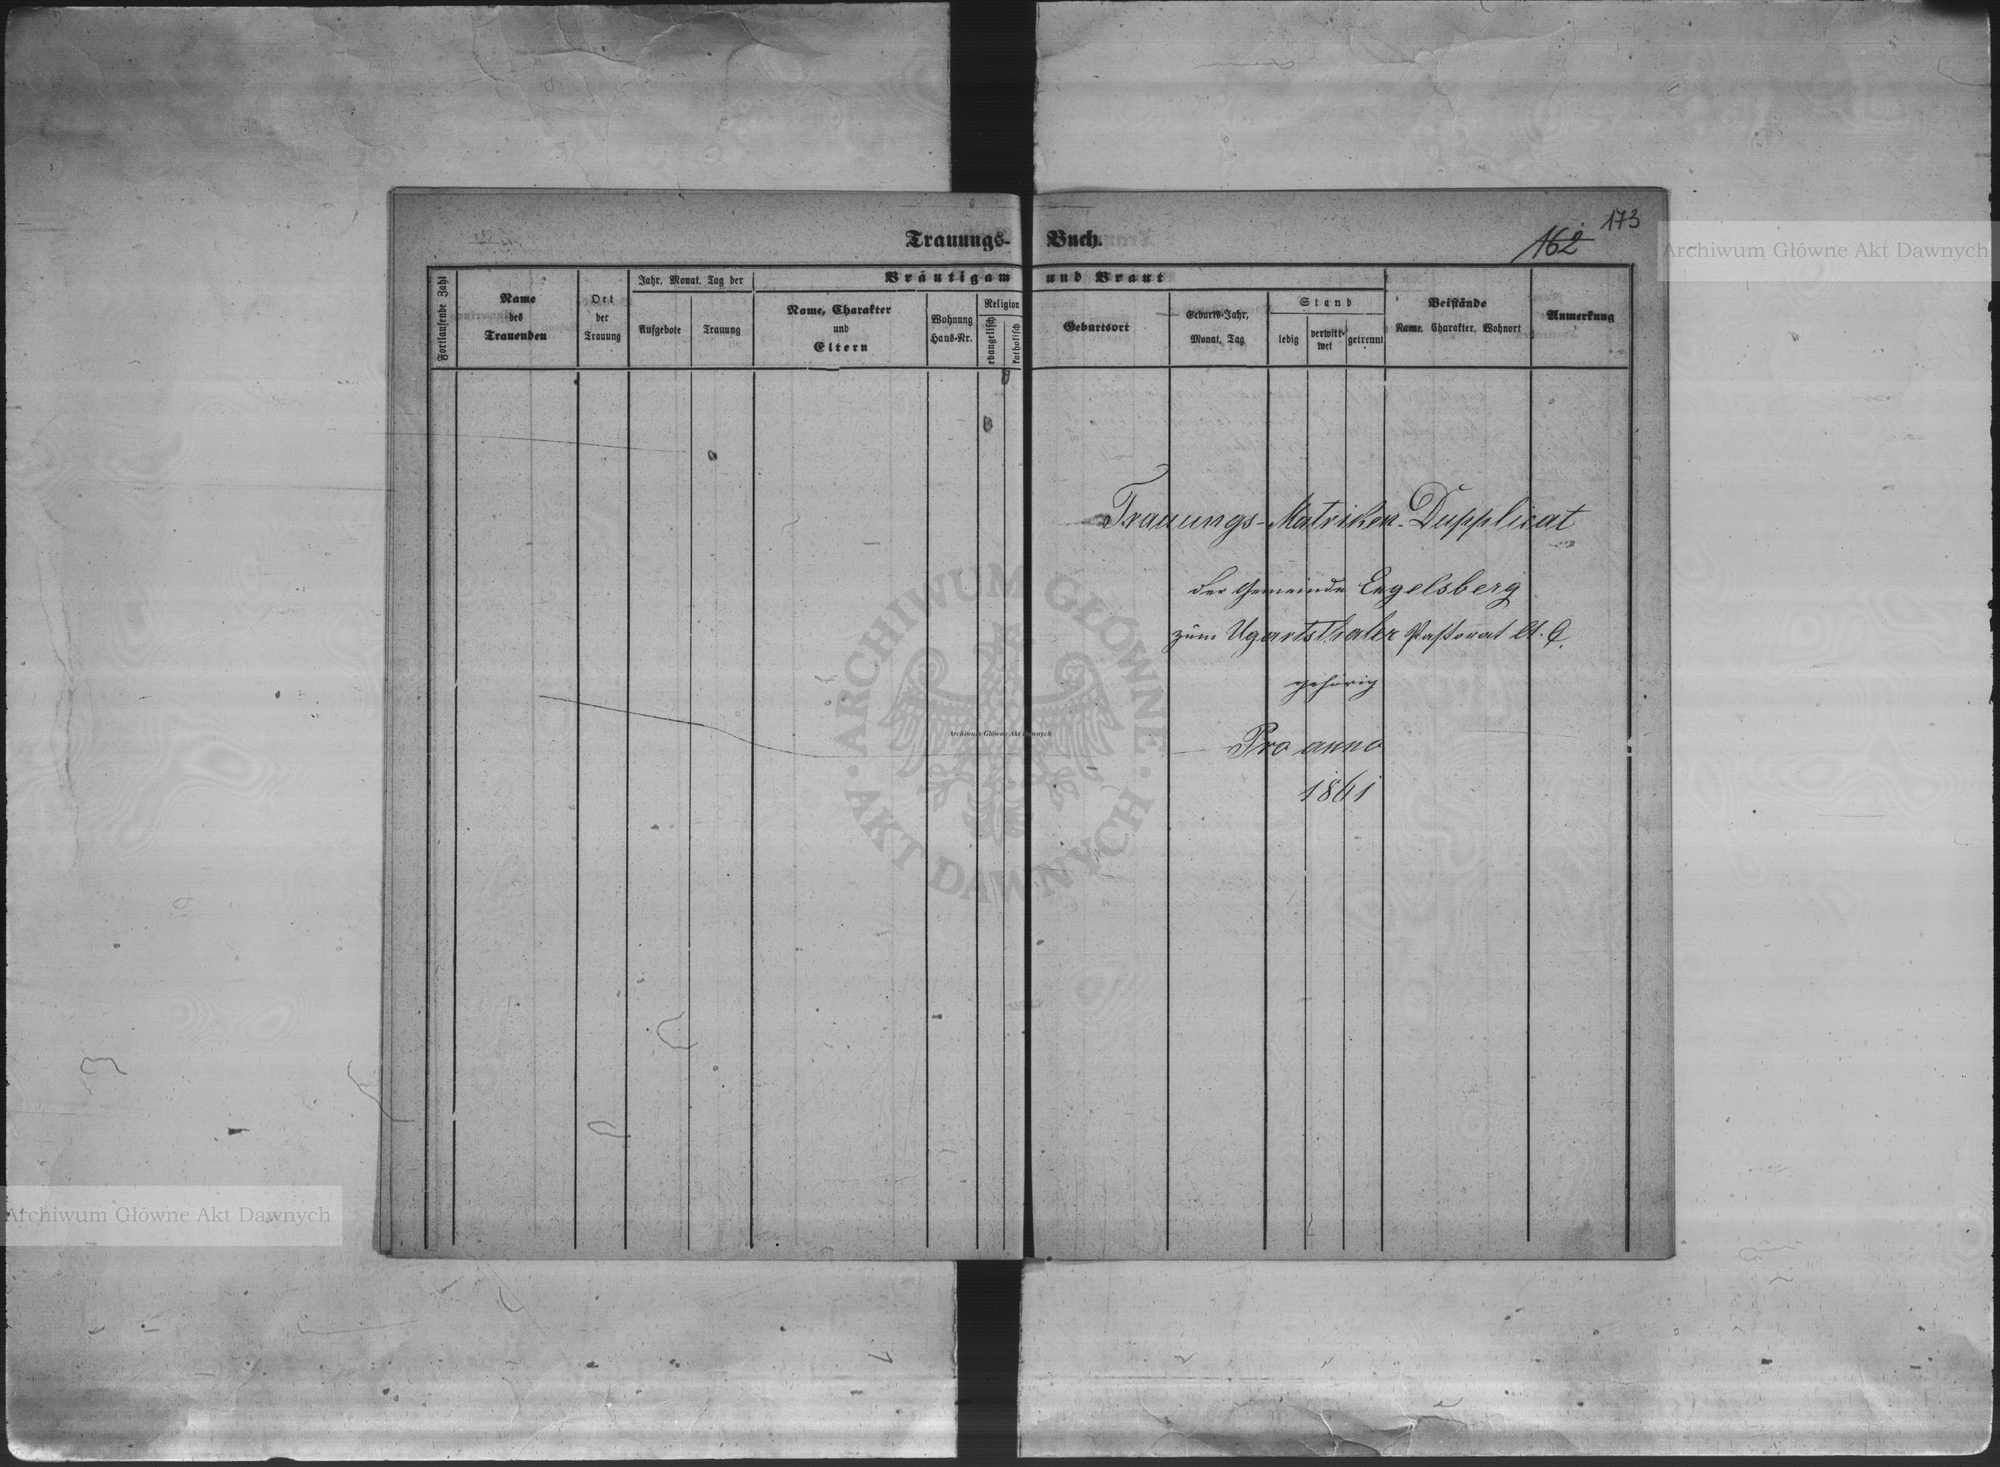 173
162
Trauungs- Buch.
Fortlaufende Zahl
Name des Trauenden
Ort der Trauung
Jahr, Monat, Tag der
Aufgebote
Trauung
Bräutigam und Braut
Name, Charakter und Eltern
Wohnung Haus-Nr.
Religion
evangelisch
katholisch
Geburtsort
Geburts-Jahr, Monat, Tag
Stand
ledig
verwittwet
getrennt
Beistände
Name, Charakter, Wohnort
Anmerkung
Trauungs-Matriken-Dupplicat
der Gemeinde Engelsberg
zum Ugartsthaler Pastorat A. C.
gehörig
Pro anno
1861
Archiwum Główne Akt Dawnych
ARCHIWUM GŁÓWNE
AKT DAWNYCH
Archiwum Główne Akt Dawnych
Archiwum Główne Akt Dawnych